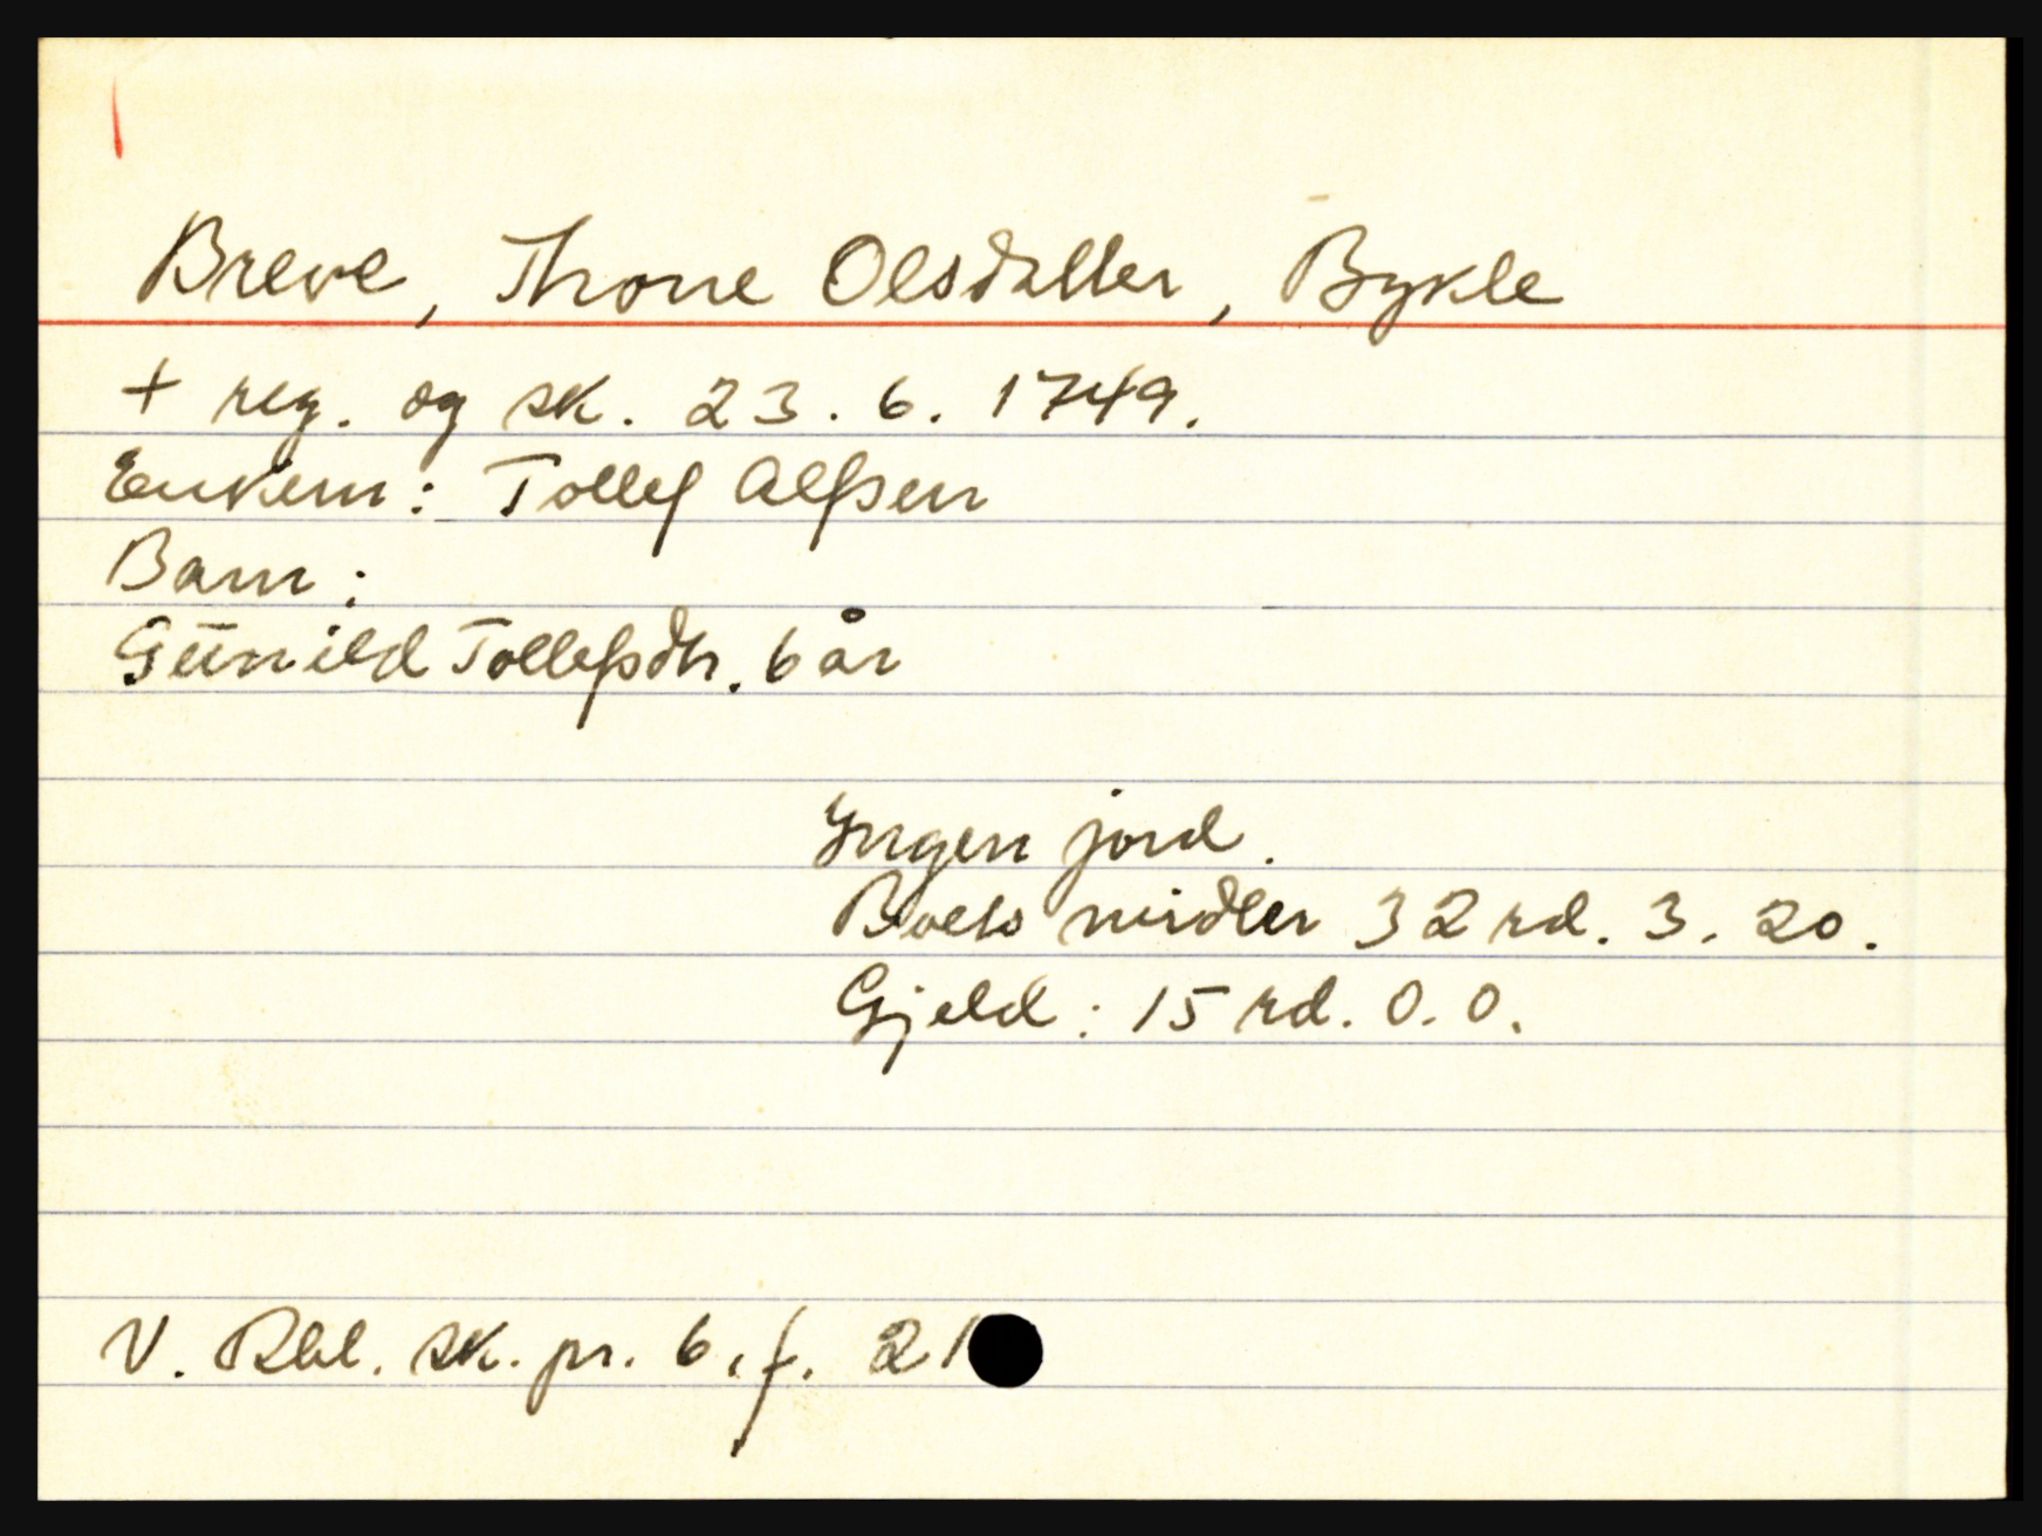 Breve, Thone Olsdatter, Bykle
+ reg. og sk. 23. 6. 1749.
Enkem: Tollef Alfsen
Barn:
Günild Tollefsdtr. 6 år
Yngen jord.
Boets midler 32 rd. 3. 20.
Gjeld: 15 rd. 0. 0.
V. Rbl. sk. pr. 6, f. 21